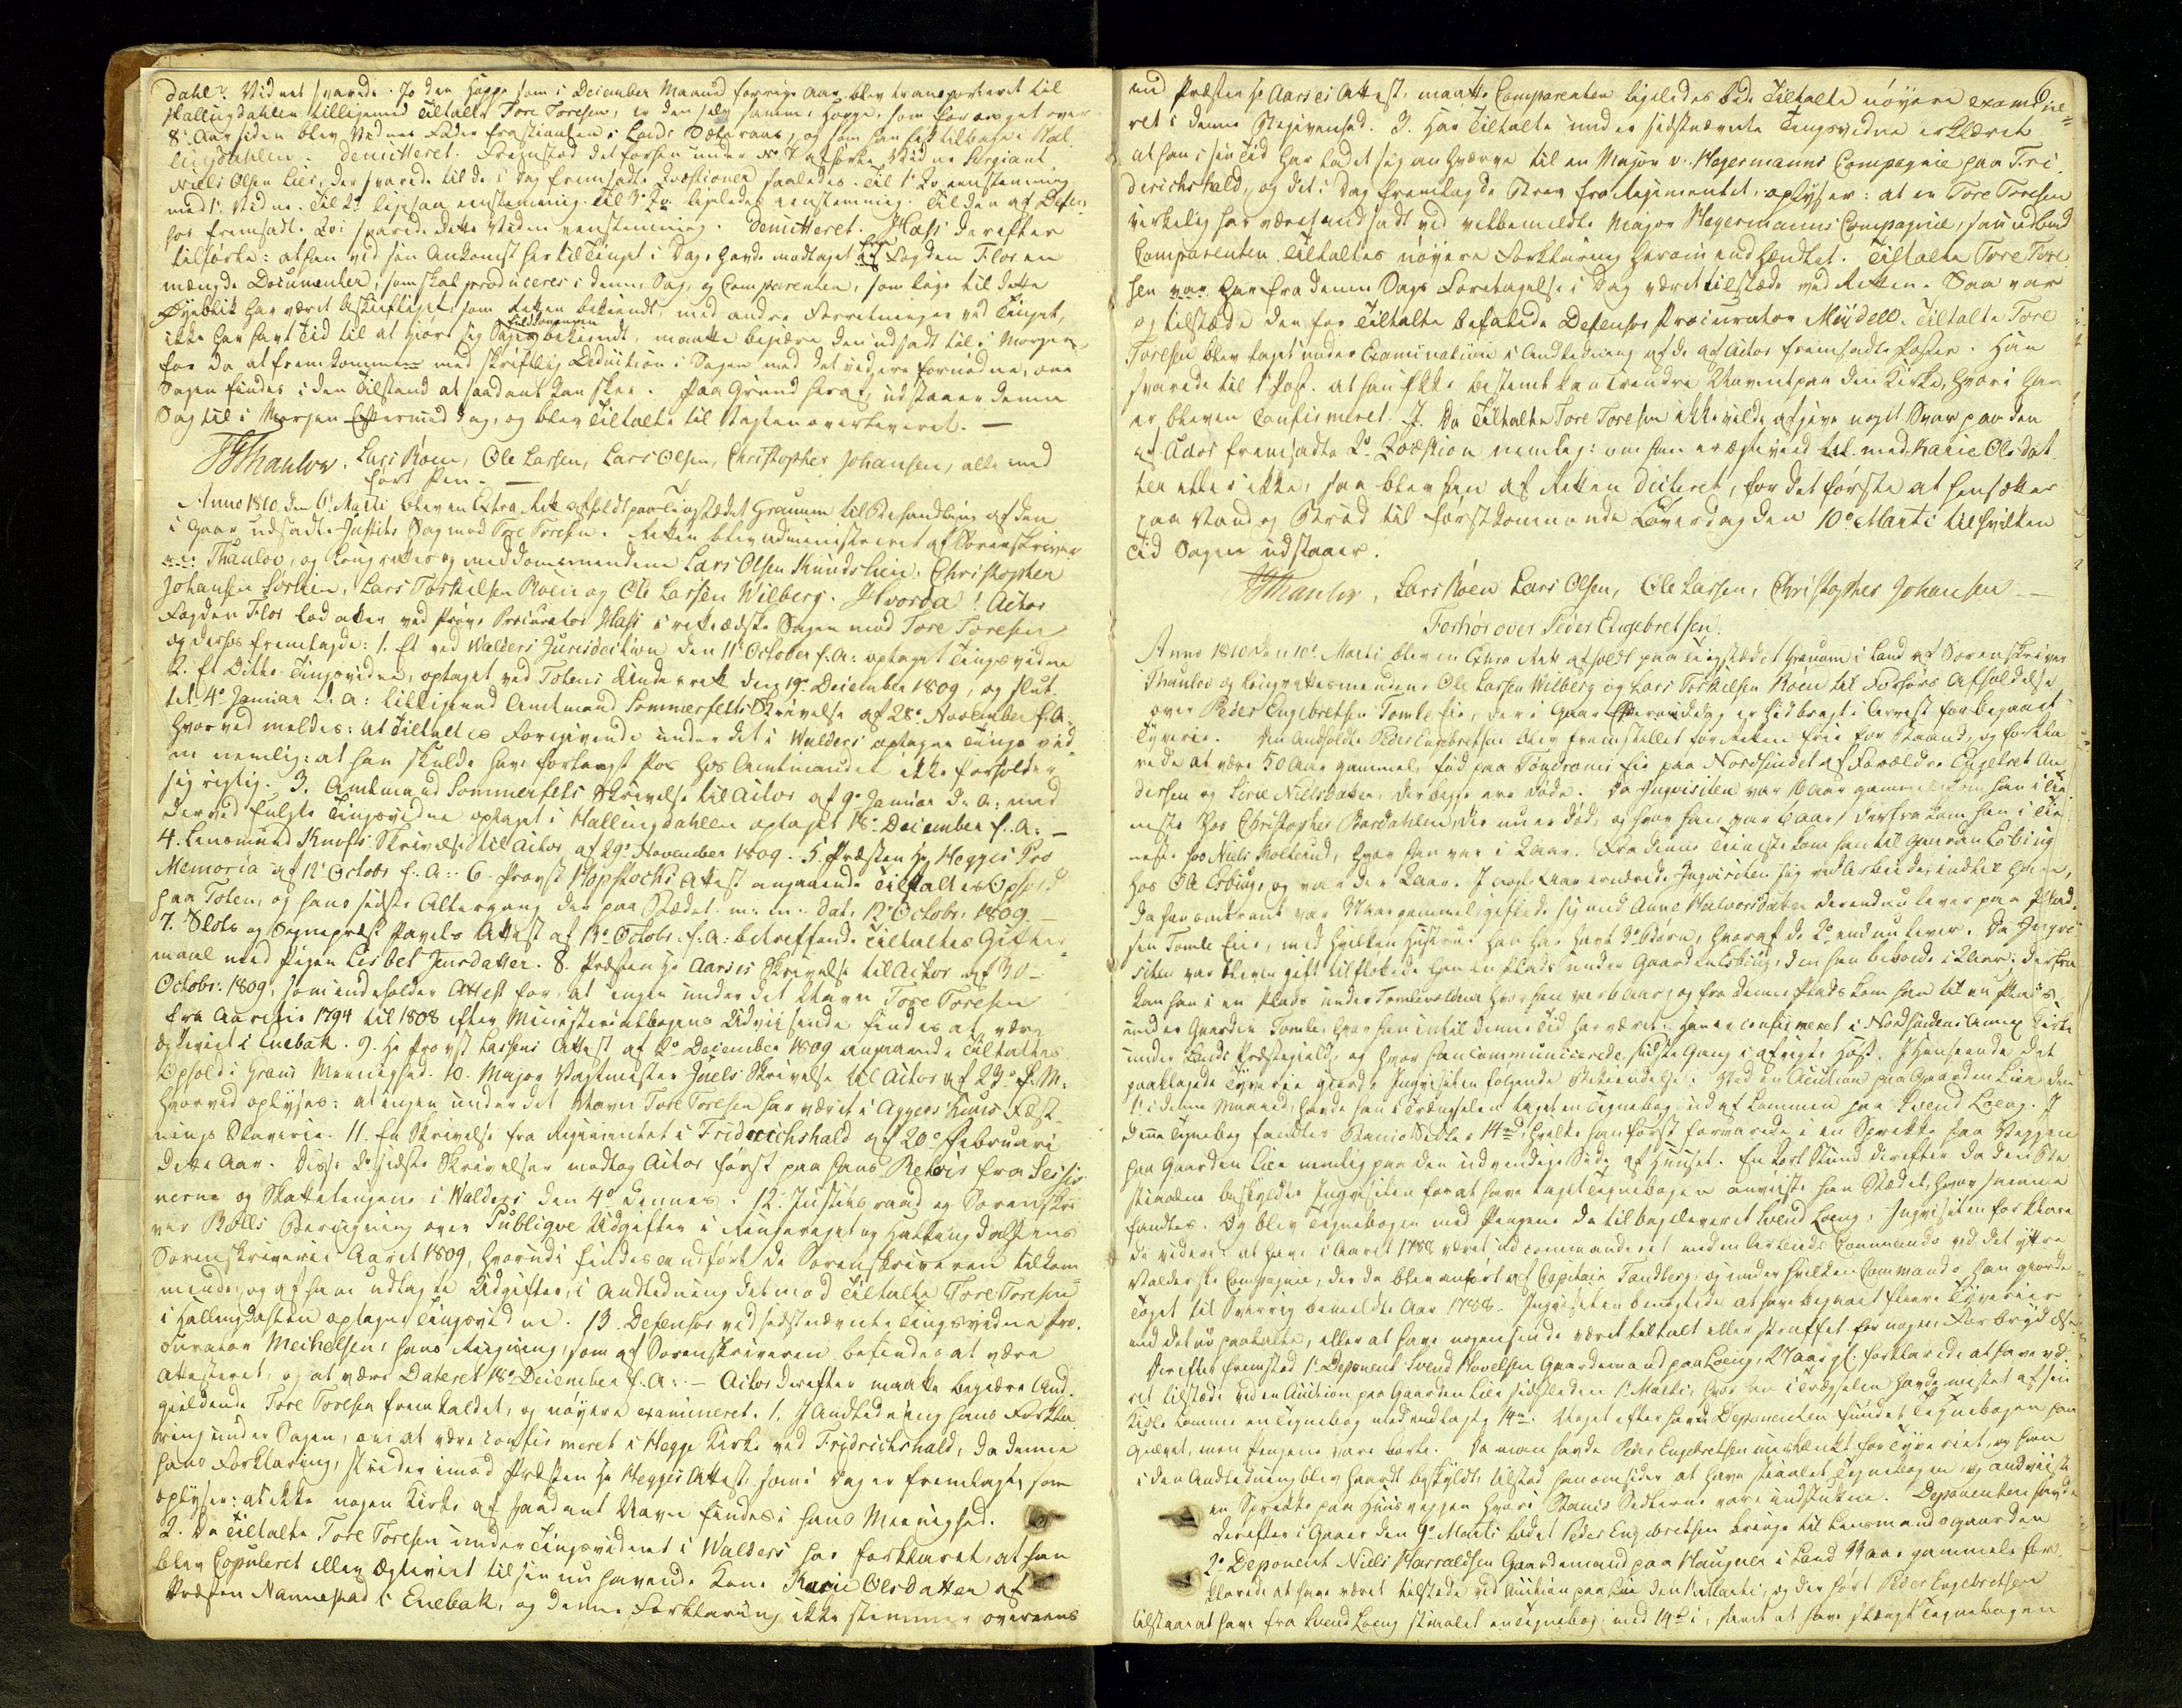 dahl? Vidnet svarede: Jo den Hoppe som i December Maaned forrige Aar blev transporteret til
Hallingdahlen tilligemed Tiltalte Tore Toresen, er den selv samme Hoppe, som for omget over
8 Aar siden blev Vidnets Fader frastiaalen i Lands Sæteraas, og som han fik tilbage i Hal-
lingdahlen. Demitteret. Fremstod det forhen under No 7 anførte Vidne Sergiant
Niels Olsen Lies, der svarede til de i Dag fremsadte Qvæstioner saaledes: Til 1e Qv. eenstemmig
med 1e Vidne. Til 2d ligesaa eenstemmig. Til 3e Qv. ligeledes eenstemmig. Til den af Defen-
sor fremsadte Qv: svarede dette Vidne eenstemmig. Demitteret. Hass derefter
tilførte: at han ved sin Ankomst her til Tinget i Dag havde modtaget fra Fogden Flor en
mængde Documenter, som skal produceres i denne Sag, og Comparenten, som lige til dette
Øyeblik har været beskieftiget, som Retten bekiendt, med andre Forretninger ved Tinget,
ikke har havt Tid til at giøre sig Sagen fuldkommen bekiendt, maatte begiære den udsadt til i Morgen,
for da at fremkomme med skriftlig Deduction i Sagen med det videre fornødne, om
Sagen findes i den Tilstand at saadant kan skee. Paa Grund heraf udstaaer denne
Sag til i Morgen Eftermiddag, og blev Tiltalte til Vagten overleveret. —
Thaulow, Lars Røen, Ole Larsen, Lars Olsen, Christopher Johansen, alle med
ført Pen. —
Anno 1810 den 6e Martii blev en Extra Ret afholdt paa Tingstædet Grauum til Behandling af den
i Gaar udsadte Justits Sag mod Tore Toresen. Retten blev administreret af Sorenskriver
Thaulow, og Laugrettes og meddomsmændene Lars Olsen Kundshuus, Christopher
Johansen Sørlien, Lars Torkilsen Roen og Ole Larsen Wilberg. Hvorda! Actor
Fogden Flor lod atter ved Prøve Procurator Hass irettesædste Sagen mod Tore Toresen
og dersos fremlagde: 1. Et ved Walders Jurisdiction den 11e October f. A: optaget Tingsvidne
2. Et Ditto Tingsvidne, optaget ved Totens Underret den 19e December 1809, og slut-
tet 4e Januar d. A: tilligemed Amtmand Sommerfelts Skrivelse af 28e November f. A:
hvorved meldes: at Tiltaltes Foregivende under det i Walders optagne Tings vid-
ne nemlig: at han skulde have forlangt Pas hos Amtmanden ikke forholder
sig rigtig. 3. Amtmand Sommerfelts Skrivelse til Actor af 9e Januar d. A: med
derved fulgte Tingsvidne optaget i Hallingdahlen optaget 18e December f. A: —
4. Lensmand Knoffs Skrivelse til Actor af 29e November 1809. 5. Præsten Hr Hegges Pro
Memoria af 12e Octobr f. A: 6. Provst Hopstocks Attest angaaende Tiltaltes Ophold
paa Toten, og hans sidste Altergang der paa Stædet. m: m: dat: 12e Octobr: 1809. —
7. Slots og Sognepræst Pavels Attest af 13e Octobr: f. A: betreffende Tiltaltes Gifter-
maal med Pigen Lisbet Jursdatter. 8. Præsten Hr Aarsis Skrivelse til Actor af 30
Octobr: 1809, som indeholder Attest for, at ingen under det Navn Tore Toresen
fra Aarene 1794 til 1808 efter Ministerialbogens Udviisende findes at være
ægteviet i Enebak. 9. Hr Provst Lassens Attest af 2e December 1809 angaaende Tiltaltes
Ophold i Grans Menighed. 10. Major Vagtmester Juels Skrivelse til Actor af 23e f. M:
hvorved oplyses: at ingen under det Navn Tore Toresen har været i Aggers Huus Fæst-
nings Slaverie. 11. En Skrivelse fra Regimentet i Fridrichshald af 20e Februari
dette Aar. Disse 2de sidste Skrivelser modtog Actor først paa hans Retour fra Sessio-
nerne og Skattetingene i Walders den 4e dennes. 12. Justitsraad og Sorenskri-
ver Bølls Beregning over Publique Udgifter i Ringeriget og Hallingdahlens
Sorenskriverie Aaret 1809, hvorudi findes anført de Sorenskriveren tilkom-
mende, og af ham udlagte Udgifter, i Andledning det mod Tiltalte Tore Toresen
i Hallingdahlen optagne Tingsvidne. 13. Defensor ved sidstnævnte Tingsvidne Pro-
curator Meichelsen, hans Regning, som af Sorenskriveren befindes at være
attesteret, og at være dateret 18e December f. A: — Actor derefter maatte begiære And-
gieldende Tore Toresen fremkaldet, og nøyere examineret. 1. I Andledning hans Forkla-
ring under Sagen, om at være confirmeret i Hegge Kirke ved Fridrichshald, da denne
hans Forklaring, strider imod Præsten Hr Hegges Attest som i Dag er fremlagt, som
oplyser: at ikke nogen Kirke af saadant Navn findes i hans Menighed.
2. Da Tiltalte Tore Toresen under Tingsvidnet i Walders har forklaret, at han
blev Copuleret eller ægteviet til sin nu havende Kone Karie Olsdatter af
Præsten Nannestad i Enebak, og denne Forklaring ikke stemmer overeens
med Præsten Hr Aarsis Attest, maatte Comparenten ligeledes bede Tiltalte nøyere examine-
ret i denne Begivenhed. 3. Har Tiltalte under sidstnævnte Tingsvidne erklæret
at han i sin Tid har ladet sig anhværve til en Major v. Hegermanns Compagnie paa Fri-
derichshald, og det i Dag fremlagde Brev fra Regimentet, oplyser: at en Tore Toresen
virkelig har været ansadt ved velbemeldte Major Hegermanns Compagnie, saa udbad
Comparenten Tiltaltes nøyere Forklaring herom indhændtet. Tiltalte Tore Tore-
sen var har fra denne Sags Foretagelse i Dag været tilstæde ved Retten. Saa var
og tilstæde den for Tiltalte befalede Defensor Procurator Mindell. Tiltalte Tore
Toresen blev taget under Examination i Andledning af de af Actor fremsadte Poster. Han
svarede til 1e Post. at han ikke bestemt kan erindre Navnet paa den Kirke, hvori han
er bleven Confirmeret. Da Tiltalte Tore Toresen ikke vilde afgive noget Svar paa den
af Actor fremsadte 2e Qvæstion nemlig: om han er ægteviet med Karie Olsdat-
ter eller ikke, saa blev han af Retten dicteret, for det første at hensættes
paa Vand og Brød til førstkommende Løverdag den 10e Martii til hvilken
Tid Sagen udstaaer.
Thaulow, Lars Røen Lars Olsen, Ole Larsen, Christopher Johansen —
Forhør over Peder Engebretsen.
Anno 1810 den 10e Martii blev en Extra Ret afholdt paa Tingstædet Grauum i Land af Sorenskriver
Thaulow og Laugrettesmændene Ole Larsen Wilberg og Lars Torkilsen Roen til Forhørs Afholdelse
over Peder Engebretsen Tomle Eie, der i Gaar Eftermiddag er hidbragt i Arrest for begaaet
Tyverie. Den Anholdte Peder Engebretsen blev fremstillet for Retten frie for Baand, og forkla-
rede at være 50 Aar gammel, fød paa Tondvoms Eie paa Nordsindet af Forældre Engebret An-
dersen og Siri Nielsdatter, der begge ere døde. Da Inqvisiten var 10 Aar gammel kom han i Tie-
neste hos Christopher Bardahlen, der nu er død, og hvor han var 6 Aar; derfra kom han i Tie-
neste hos Niels Molterud, hvor han var i 2 Aar. Fra denne Tieneste kom han til Gaarden Esbiug
hos Ole Esbiug, og var der 2 Aar. I nogle Aar ernærede Inqvisiten sig ved Arbeide, indtil han,
da han omtrent var Aar gammel, giftede sig med Anne Halvorsdatter der endnu lever paa Plad-
sen Tomle Eie, med hvilken Hustrue han har havt 3e Børn, hvoraf de 2e endnu lever. Da Inqvi-
siten var bleven gift tilflyttede han en Plads under Gaarden Esbiug, den han beboede i 2 Aar. Derfra
kom han i en Plads under Tomlevolden hvor han var 6 Aar, og fra denne Plads kom han til en Plads
under Gaarden Tomle, hvor han indtil denne Tid har været. Han er confirmeret i Nordsindens Annex Kirke
under Lands Præstegield, og hvor han communicerede sidste Gang i afvigte Høst. I Henseende det
paaklagede Tyverie giorde Inqvisiten følgende Bekiendelse: Ved en Auction paa Gaarden Lien den
1e i denne Maaned, havde han i Trængselen taget en Tegnebog ud af Lommen paa Svend Loeng. I
denne Tegnebog fandtes Banco Sedler 14rd, hvilke han først forvarede i en Sprekke paa Veggen
paa Gaarden Lien nemlig paa den udvendige Side af Huuset. En kort Stund derefter da den Be-
stiaalne beskyldte Inqvisiten for at have taget Tegnebogen anviiste han Stædet, hvor samme
fandtes. Og blev Tegnebogen med Pengene da tilbageleveret Svend Loeng. Inqvisiten forklare-
de videre: at have i Aaret 1788 været udcommanderet med en Arbeids Commando ved det yttre
Walderske Compagnie, der da blev anført af Capitain Tandberg, og under hvilken Commando han giorde
Toget til Sverrig bemeldte Aar 1788. Inqvisiten benægtede at have begaaet fleere Tyverier
end det nu paatalte, eller at have nogensinde været tiltalt eller straffet for nogen Forbrydelse.
Derefter fremstod 1e Deponent Svend Hovelsen Gaardemand paa Loeng, 27 Aar gl. forklarede at have væ-
ret tilstæde ved en Auction paa Gaarden Lien sidstleden 1e Martii, hvor han i Trængselen havde mistet af sin
Kiole Lomme en Tegnebog med indlagt 14rd. Noget efter havde Deponenten fundet Tegnebogen paa
Gulvet, men Pengene vare borte. Da man havde Peder Engebretsen mistænkt for Tyveriet, og han
i den Andledning blev haardt beskyldt, tilstod han omsider at have stiaalet Tegnebogen, og anviiste
en Sprekke paa Huusveggen hvori Banco Sedlerne vare indstukne. Deponenten havde
derefter i Gaar den 9e Martii ladet Peder Engebretsen bringe til Lensmandsgaarden
2e Deponent Niels Harraldsen Gaardemand paa Haugner i Land Aar gammel, for-
klarede at have været tilstæde ved Auction paa Lien den 1e Martii, og der hørt Peder Engebretsen
tilstaae at have fra Svend Loeng stiaalet en Tegnebog med 14rd i, samt at have slængt Tegnebogen